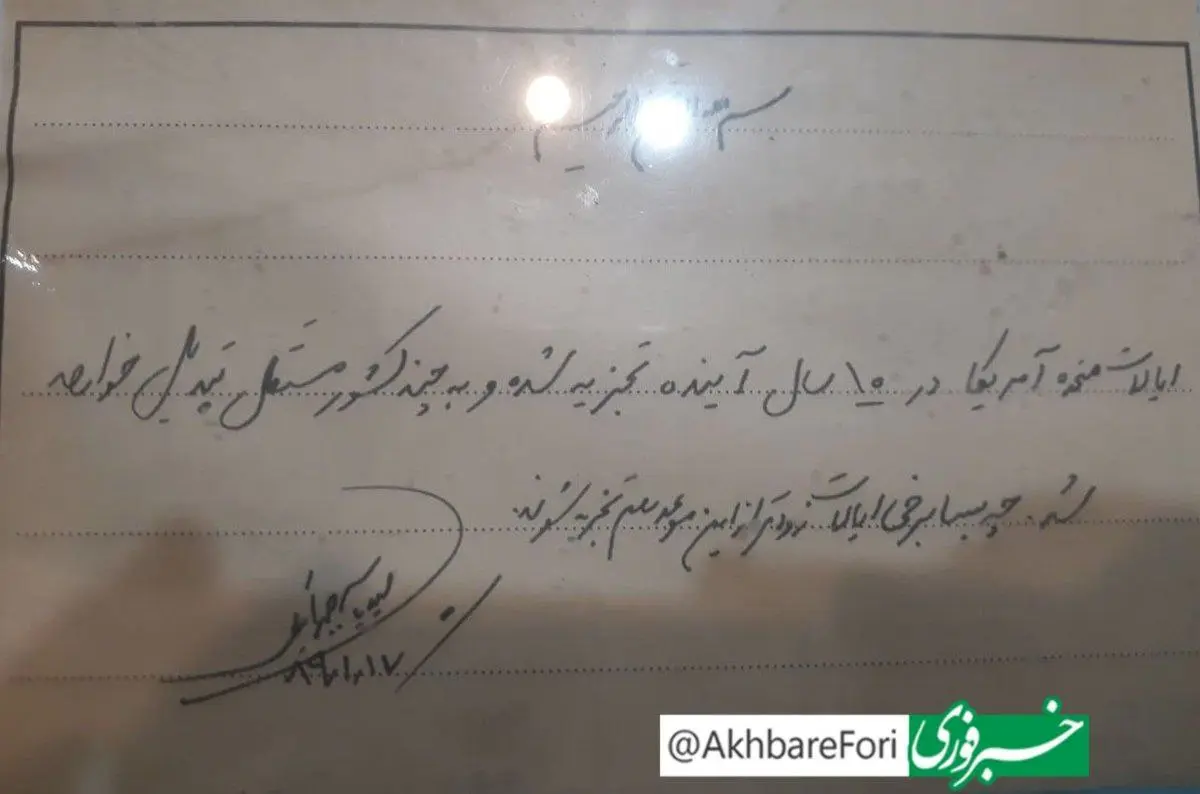 بسم الله الرحمن الرحیم
ایالات متحده آمریکا در ۱۵ سال آینده تجزیه شده و به چند کشور مستقل تبدیل خواهد
شد. چه بسا برخی ایالات زودتر از این موعد هم تجزیه شوند.
سید یاسر جبرائیلی
@AkhbareFori خبرفوری